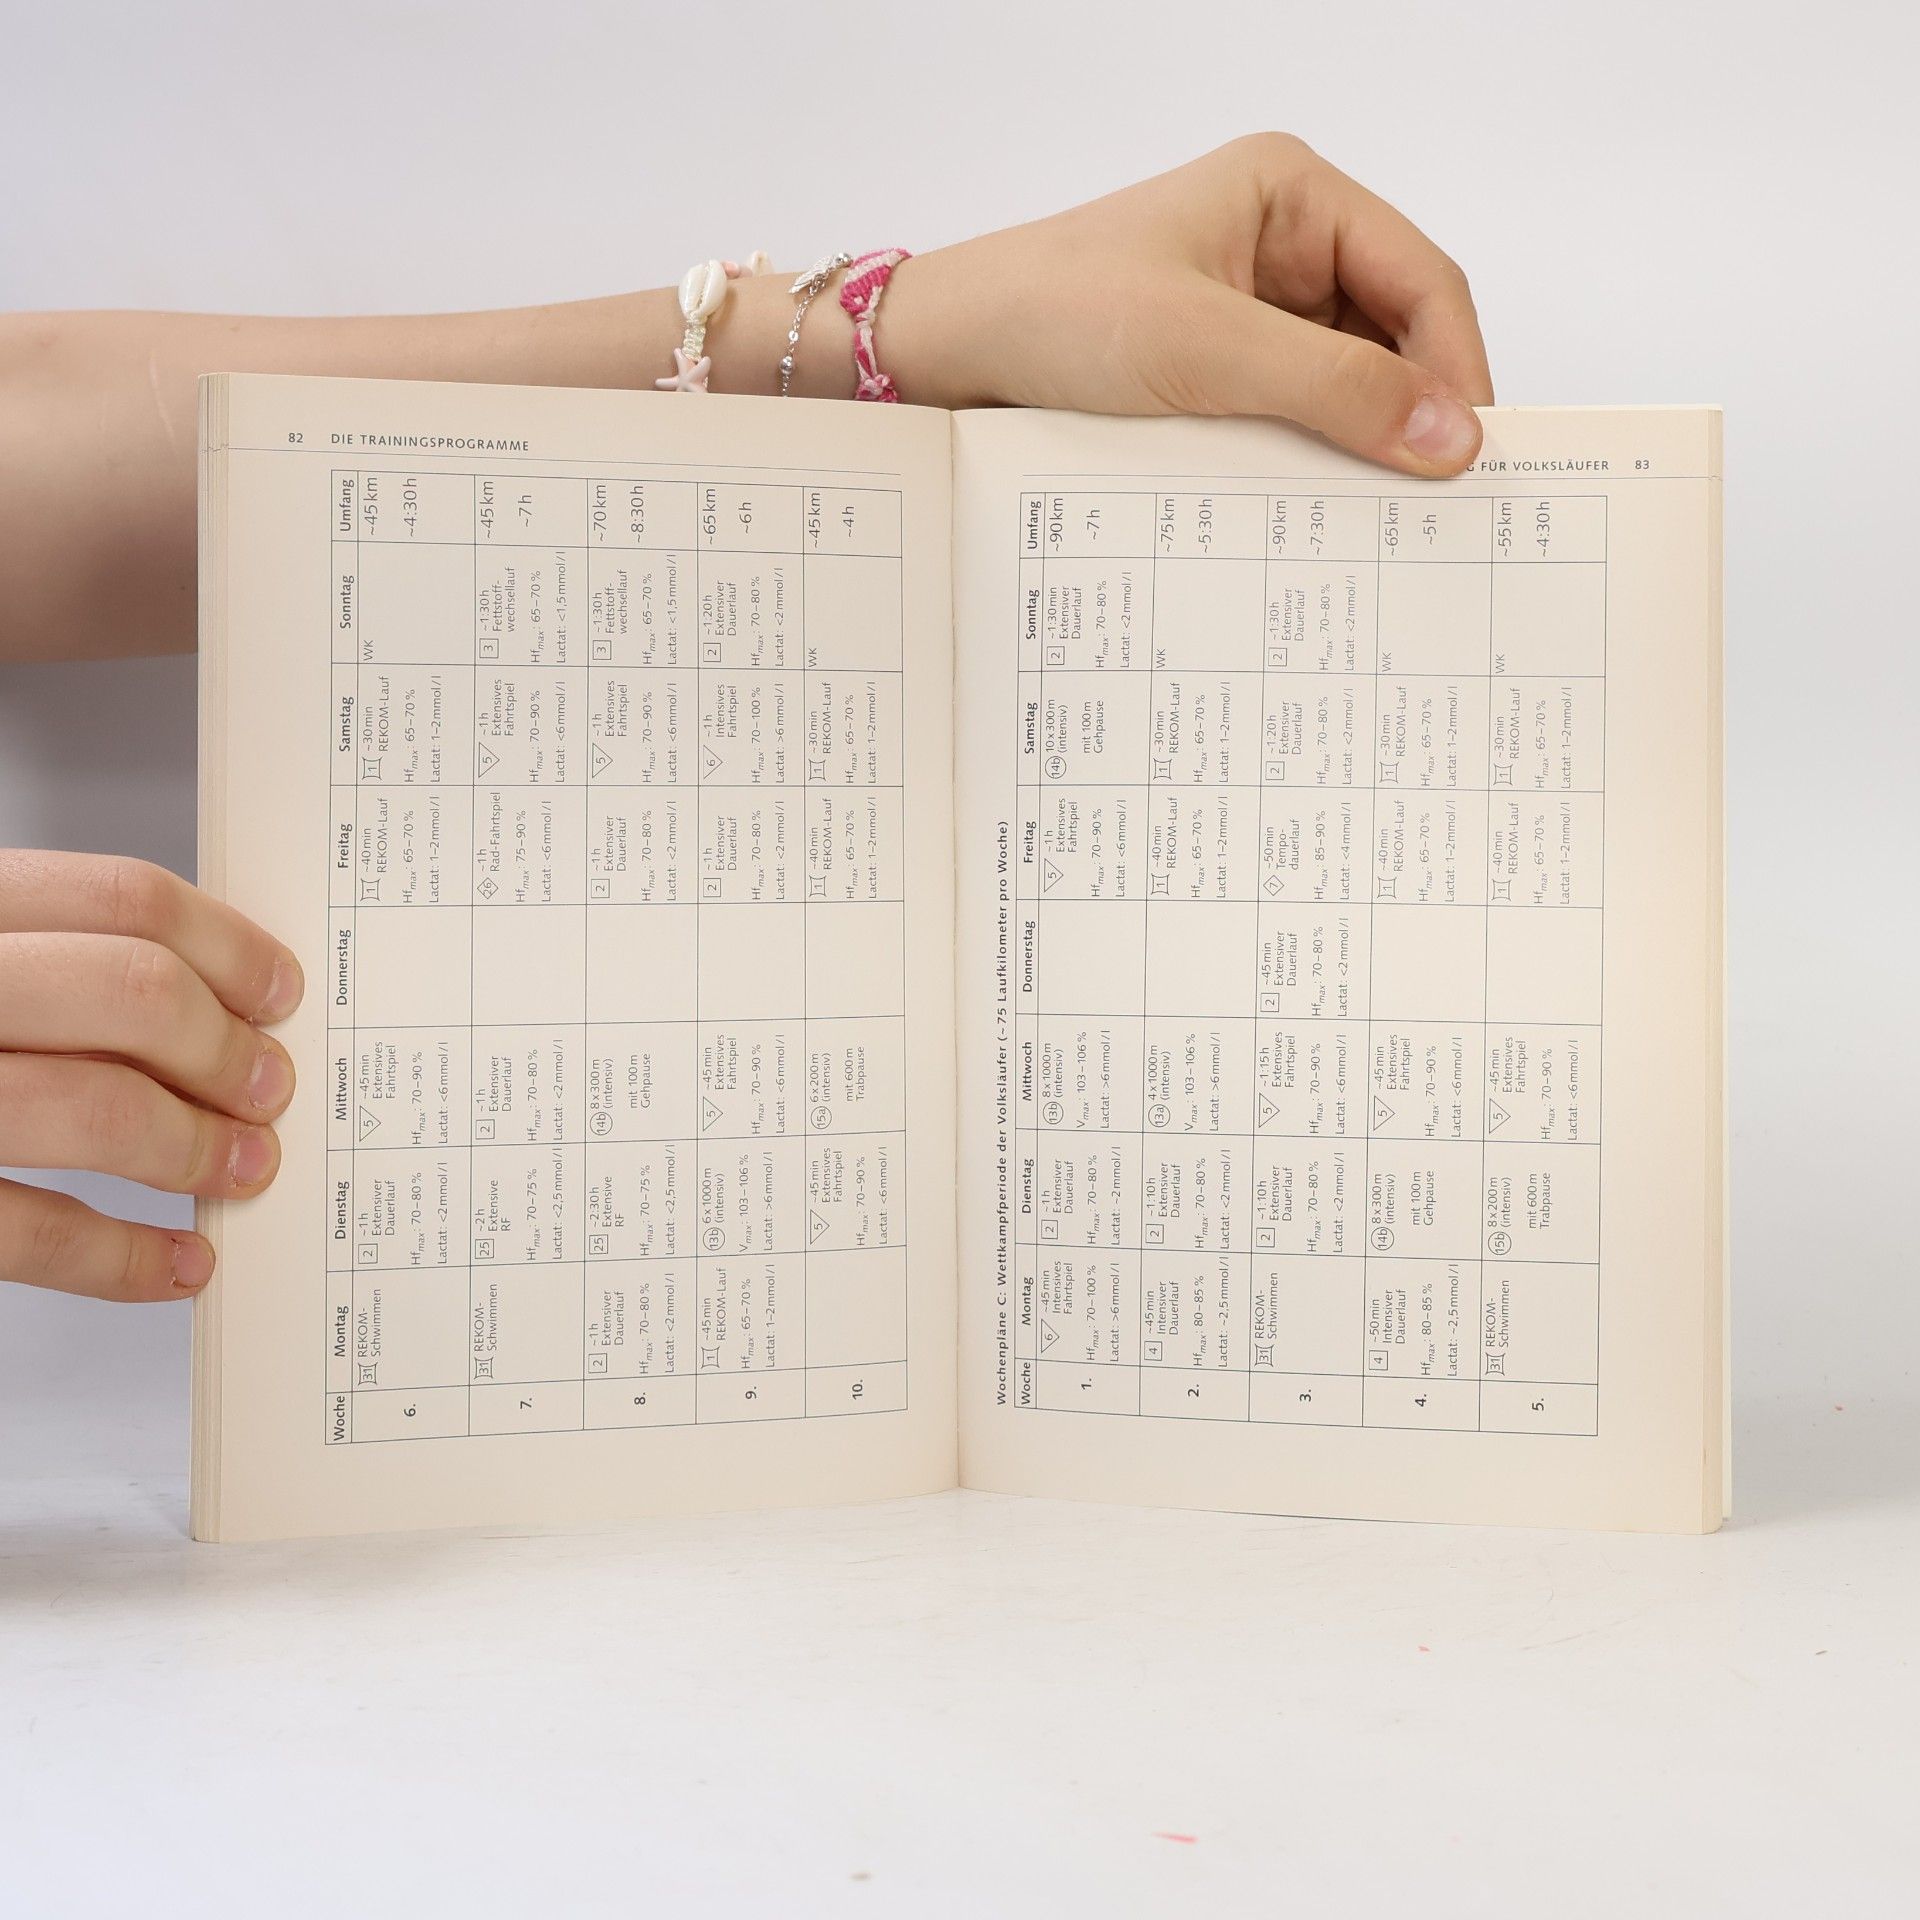 82 DIE TRAININGSPROGRAMME
Woche Montag Dienstag Mittwoch Donnerstag Freitag Samstag Sonntag Umfang
6.
31 REKOM-
Schwimmen
2 ~1h
Extensiver
Dauerlauf
Hfmax: 70–80%
Lactat: <2mmol/l
5 ~45min
Extensives
Fahrtspiel
Hfmax: 70–90%
Lactat: <6mmol/l
1 ~40min
REKOM-Lauf
Hfmax: 65–70%
Lactat: 1–2mmol/l
1 ~30min
REKOM-Lauf
Hfmax: 65–70%
Lactat: 1–2mmol/l
WK
~45km
~4:30h
7.
31 REKOM-
Schwimmen
25 ~2h
Extensive
RF
Hfmax: 70–75%
Lactat: <2,5mmol/l
2 ~1h
Extensiver
Dauerlauf
Hfmax: 70–80%
Lactat: <2mmol/l
26 ~1h
Rad-Fahrtspiel
Hfmax: 75–90%
Lactat <6mmol/l
5 ~1h
Extensives
Fahrtspiel
Hfmax: 70–90%
Lactat: <6mmol/l
3 ~1:30h
Fettstoff-
wechsellauf
Hfmax: 65–70%
Lactat: <1,5mmol/l
~45km
~7h
8.
2 ~1h
Extensiver
Dauerlauf
Hfmax: 70–80%
Lactat: <2mmol/l
25 ~2:30h
Extensive
RF
Hfmax: 70–75%
Lactat: <2,5mmol/l
14b 8x300m
(intensiv)
mit 100m
Gehpause
2 ~1h
Extensiver
Dauerlauf
Hfmax: 70–80%
Lactat: <2mmol/l
5 ~1h
Extensives
Fahrtspiel
Hfmax: 70–90%
Lactat: <6mmol/l
3 ~1:30h
Fettstoff-
wechsellauf
Hfmax: 65–70%
Lactat: <1,5mmol/l
~70km
~8:30h
9.
1 ~45min
REKOM-Lauf
Hfmax: 65–70%
Lactat: 1–2mmol/l
13b 6x1000m
(intensiv)
Vmax: 103–106%
Lactat: >6mmol/l
5 ~45min
Extensives
Fahrtspiel
Hfmax: 70–90%
Lactat: <6mmol/l
2 ~1h
Extensiver
Dauerlauf
Hfmax: 70–80%
Lactat: <2mmol/l
6 ~1h
Intensives
Fahrtspiel
Hfmax: 70–100%
Lactat: >6mmol/l
2 ~1:20h
Extensiver
Dauerlauf
Hfmax: 70–80%
Lactat: <2mmol/l
~65km
~6h
10.
5 ~45min
Extensives
Fahrtspiel
Hfmax: 70–90%
Lactat: <6mmol/l
15a 6x200m
(intensiv)
mit 600m
Trabpause
1 ~40min
REKOM-Lauf
Hfmax: 65–70%
Lactat: 1–2mmol/l
1 ~30min
REKOM-Lauf
Hfmax: 65–70%
Lactat: 1–2mmol/l
WK
~45km
~4h
G FÜR VOLKSLÄUFER 83
Wochenpläne C: Wettkampfperiode der Volksläufer (~75 Laufkilometer pro Woche)
Woche Montag Dienstag Mittwoch Donnerstag Freitag Samstag Sonntag Umfang
1.
6 ~45min
Intensives
Fahrtspiel
Hfmax: 70–100%
Lactat: >6mmol/l
2 ~1h
Extensiver
Dauerlauf
Hfmax: 70–80%
Lactat: ~2mmol/l
13b 8x1000m
(intensiv)
Vmax: 103–106%
Lactat: >6mmol/l
5 ~1h
Extensives
Fahrtspiel
Hfmax: 70–90%
Lactat: <6mmol/l
14b 10x300m
(intensiv)
mit 100m
Gehpause
2 ~1:30min
Extensiver
Dauerlauf
Hfmax: 70–80%
Lactat: <2mmol/l
~90km
~7h
2.
4 ~45min
Intensiver
Dauerlauf
Hfmax: 80–85%
Lactat: ~2,5mmol/l
2 ~1:10h
Extensiver
Dauerlauf
Hfmax: 70–80%
Lactat: <2mmol/l
13a 4x1000m
(intensiv)
Vmax: 103–106%
Lactat: >6mmol/l
1 ~40min
REKOM-Lauf
Hfmax: 65–70%
Lactat: 1–2mmol/l
1 ~30min
REKOM-Lauf
Hfmax: 65–70%
Lactat: 1–2mmol/l
WK
~75km
~5:30h
3.
31 REKOM-
Schwimmen
2 ~1:10h
Extensiver
Dauerlauf
Hfmax: 70–80%
Lactat: <2mmol/l
5 ~1:15h
Extensives
Fahrtspiel
Hfmax: 70–90%
Lactat: <6mmol/l
2 ~45min
Extensiver
Dauerlauf
Hfmax: 70–80%
Lactat: <2mmol/l
7 ~50min
Tempo-
dauerlauf
Hfmax: 85–90%
Lactat: <4mmol/l
2 ~1:20h
Extensiver
Dauerlauf
Hfmax: 70–80%
Lactat: <2mmol/l
2 ~1:30h
Extensiver
Dauerlauf
Hfmax: 70–80%
Lactat: <2mmol/l
~90km
~7:30h
4.
4 ~50min
Intensiver
Dauerlauf
Hfmax: 80–85%
Lactat: ~2,5mmol/l
14b 8x300m
(intensiv)
mit 100m
Gehpause
5 ~45min
Extensives
Fahrtspiel
Hfmax: 70–90%
Lactat: <6mmol/l
1 ~40min
REKOM-Lauf
Hfmax: 65–70%
Lactat: 1–2mmol/l
1 ~30min
REKOM-Lauf
Hfmax: 65–70%
Lactat: 1–2mmol/l
WK
~65km
~5h
5.
31 REKOM-
Schwimmen
15b 8x200m
(intensiv)
mit 600m
Trabpause
5 ~45min
Extensives
Fahrtspiel
Hfmax: 70–90%
Lactat: <6mmol/l
1 ~40min
REKOM-Lauf
Hfmax: 65–70%
Lactat: 1–2mmol/l
1 ~30min
REKOM-Lauf
Hfmax: 65–70%
Lactat: 1–2mmol/l
WK
~55km
~4:30h